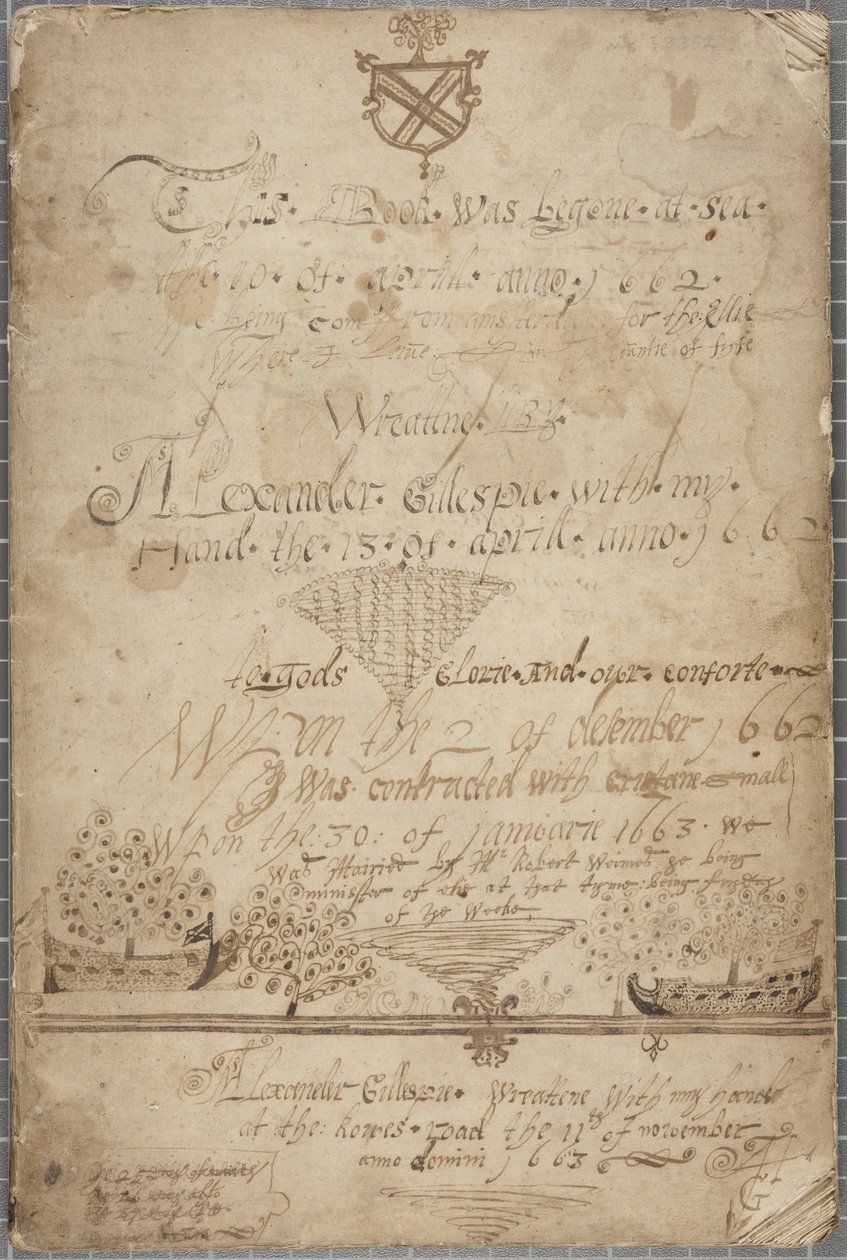 This Book was begone at sea
the 10 of aprill anno 1662
We being com from amsterdam for the Ellie
Where I leive in countie of fyfe
Wreattne BY
Alexander Gillespie with my
Hand the 13 of aprill anno 1662
to gods Glorie And our conforte
Wpon the 2 of desember 1662
I Was contracted with cristane small
Wpon the 30 of januarie 1663 we
Was Mairied by Mr Robert Weimes he being
ministter of elie at that tyme being
of ye Weeke
Alexander Gillespie Wreattene With my hand
at the kowes road the 11th of november
anno domini 1663 AG